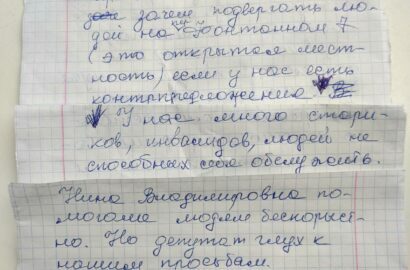 зачем подвергать лю-
дей на Фонтанном 7
(это открытая мест-
ность) если у нас есть
контрпредложение
У нас много стари-
ков, инвалидов, людей не
способных себя обслужить.
Нина Владимировна по-
могала людям бескорыст-
но. Но депутат глух к
нашим просьбам.